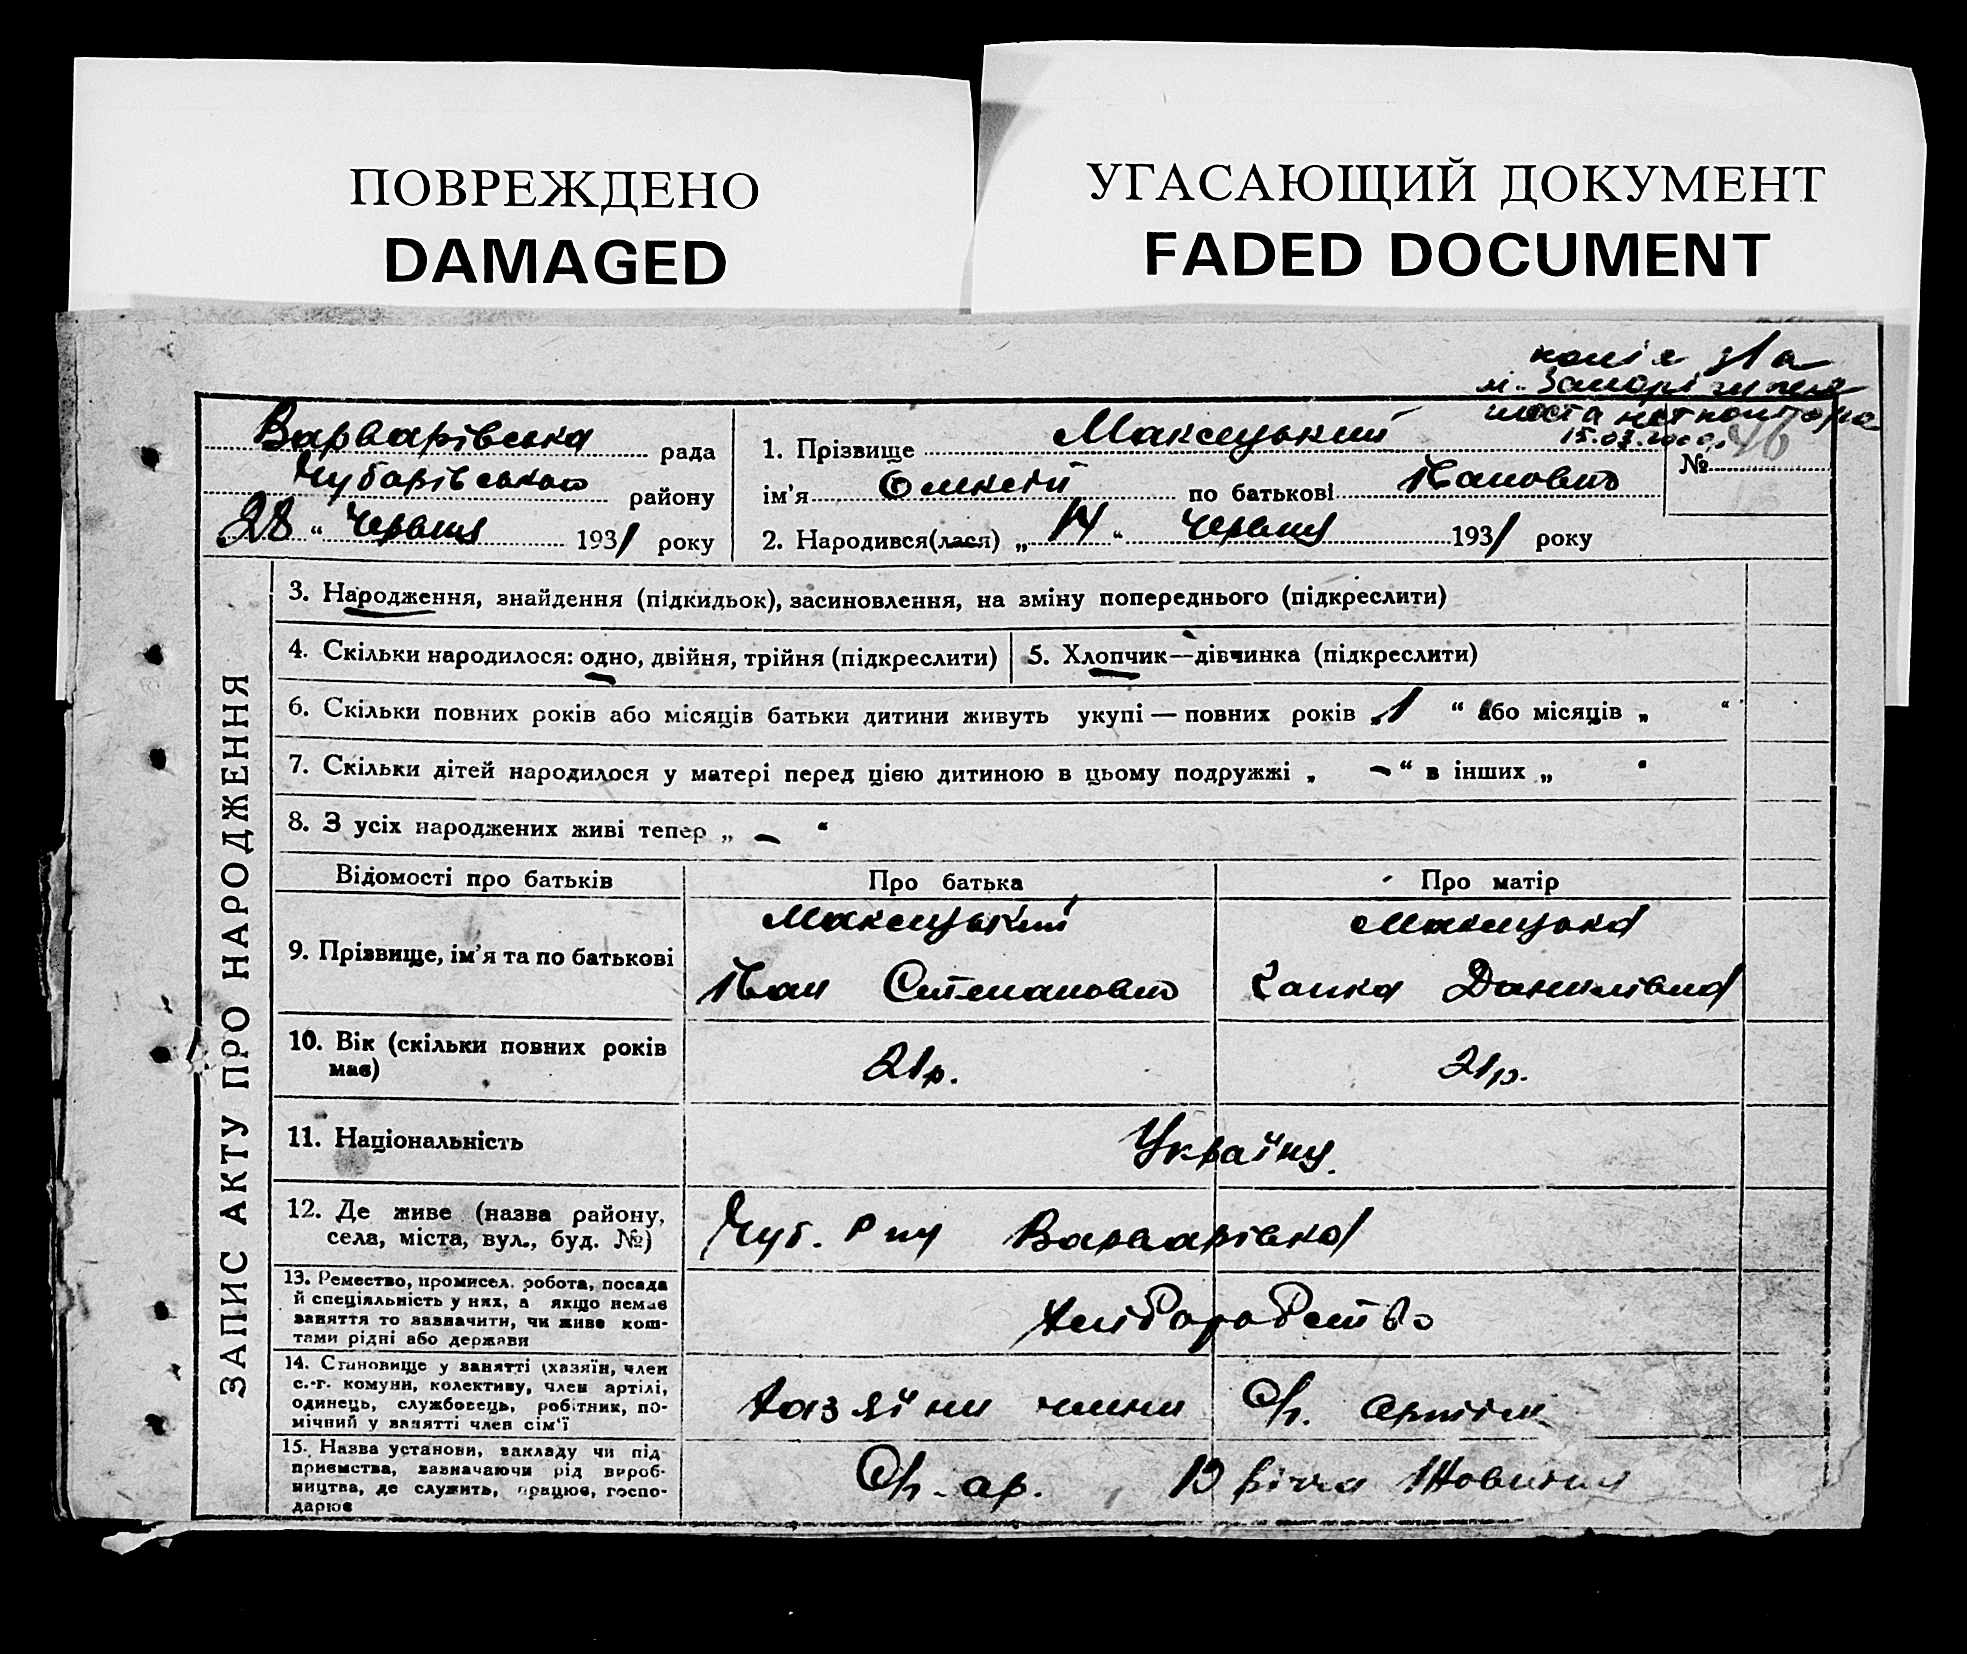 ПОВРЕЖДЕНО
DAMAGED
УГАСАЮЩИЙ ДОКУМЕНТ
FADED DOCUMENT
копія
м. Запоріжжя
шоста нотконтора
15.03.2000
ЗАПИС АКТУ ПРО НАРОДЖЕННЯ
Варварівська рада
Чубарівського району
28 " Червня 1931 року
1. Прізвище Максицький
ім'я Олексій по батькові Іванович
№ 46
2. Народився(лася) „ 14 " Червня 1931 року
3. Народження, знайдення (підкидьок), засиновлення, на зміну попереднього (підкреслити)
4. Скільки народилося: одно, двійня, трійня (підкреслити)
5. Хлопчик—дівчинка (підкреслити)
6. Скільки повних років або місяців батьки дитини живуть укупі — повних років „ 1 " або місяців „ "
7. Скільки дітей народилося у матері перед цією дитиною в цьому подружжі „ – " в інших „ "
8. З усіх народжених живі тепер „ – "
Відомості про батьків Про батька Про матір
9. Прізвище, ім'я та по батькові
Максицький Максицька
Іван Степанович Ганка Данилівна
10. Вік (скільки повних років має)
21р. 21р.
11. Національність
Україну.
12. Де живе (назва району,
села, міста, вул., буд. №)
Чуб. р ну Варварівка
13. Ремество, промисел, робота, посада
й спеціяльність у них, а якщо немає
заняття то зазначити, чи живе кош-
тами рідні або держави
Хліборобство
14. Становище у занятті (хазяїн, член
с.-г. комуни, колективу, член артілі,
одинець, службовець, робітник, по-
мічний у занятті член сім'ї
Хазяїни члени С/г. артіли
15. Назва установи, закладу чи під-
приємства, зазначаючи рід вироб-
ництва, де служить, працює, госпо-
дарює
С/г. ар. 13 річча Жовтня